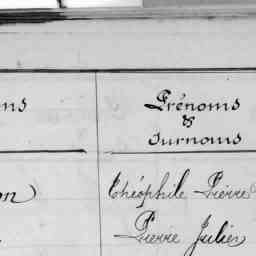 ms Prénoms
&
surnoms
on Théophile Pierre
Pierre Julien